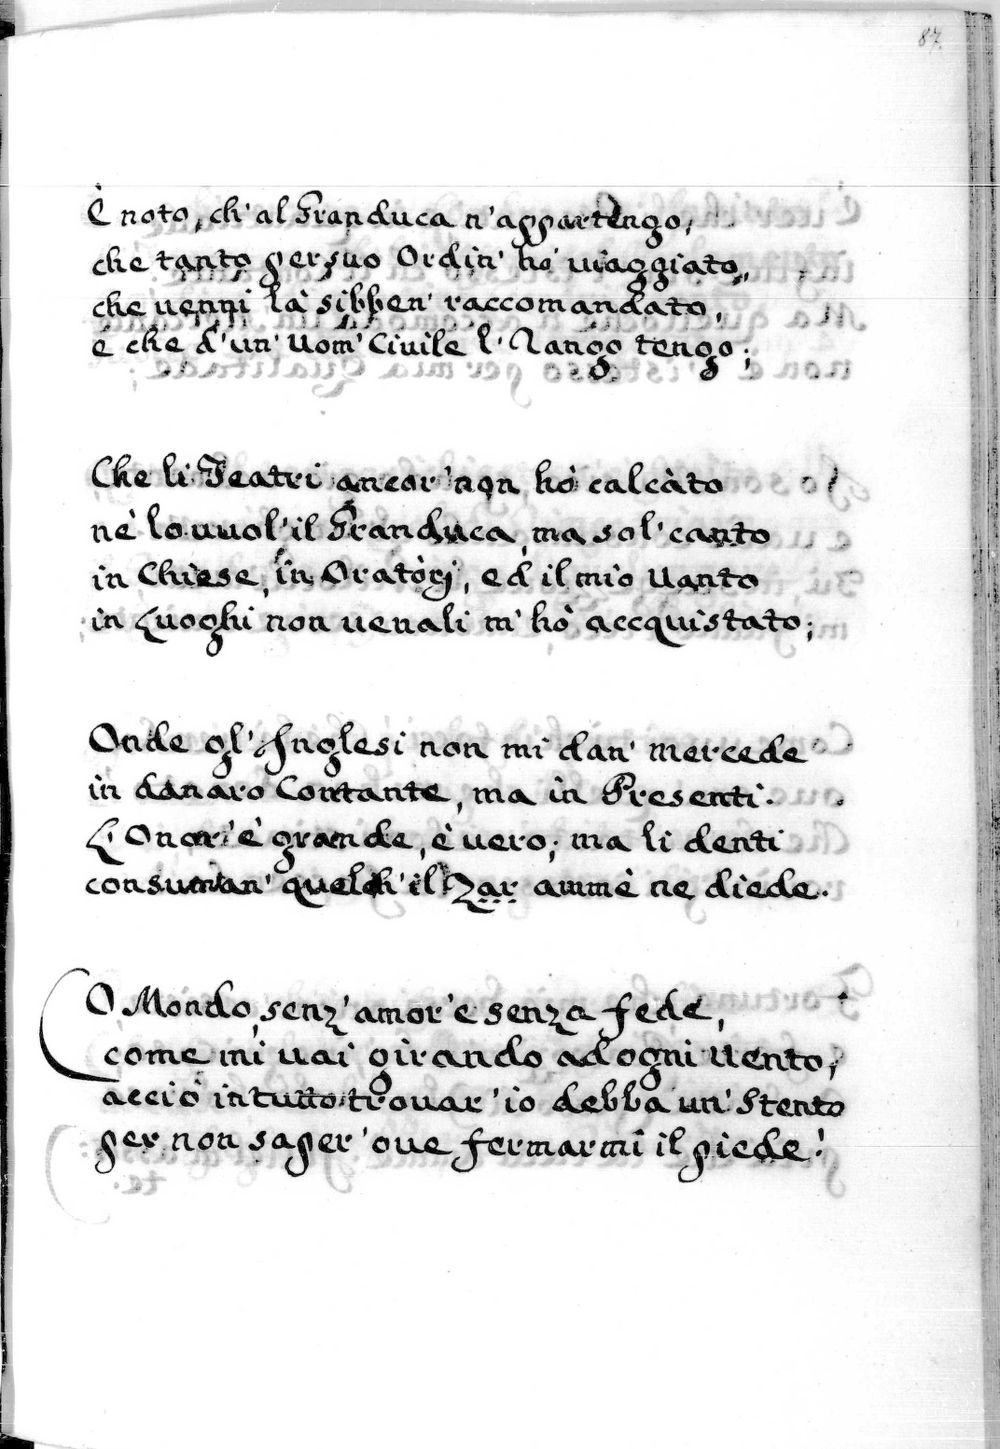 87.
È noto, ch' al Granduca n' appartengo,
che tanto per suo Ordin' hò viaggiato,
che venni là sibben' raccomandato,
è che d' un' Uom' Civile l' Rango tengo;
Che li Teatri ancor' non hò calcàto
nè lo vuol' il Granduca, ma sol' canto
in Chiese, in Oratòrj, ed il mio Vanto
in Luoghi non venali m' hò accquistato;
Onde gl' Inglesi non mi dan' mercede
in danaro Contante, ma in Presenti.
L' Onor' è grande, è vero; ma li denti
consuman' quelch' il Zar ammè ne diede.
O Mondo, senz' amor' è senza fede,
come mi vai girando ad ogni Vento,
acciò in tutto trovar' io debba un' Stento
per non saper' ove fermarmi il piede!